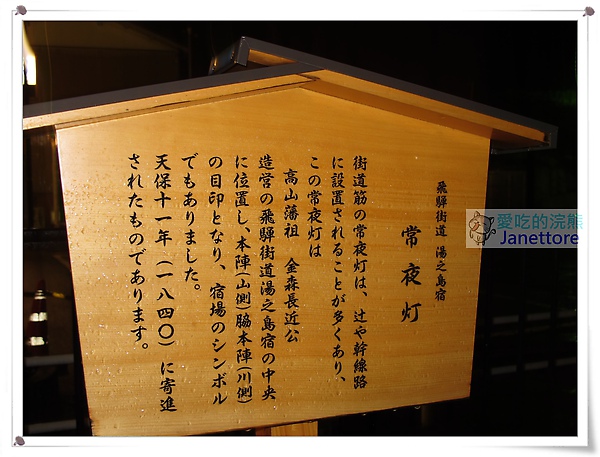 飛騨街道 湯之島宿
常夜灯
街道筋の常夜灯は、辻や幹線路
に設置されることが多くあり、
この常夜灯は
高山藩祖 金森長近公
造営の飛騨街道湯之島宿の中央
に位置し、本陣(山側)脇本陣(川側)
の目印となり、宿場のシンボル
でもありました。
天保十一年(一八四〇)に寄進
されたものであります。
愛吃的浣熊
Janettore